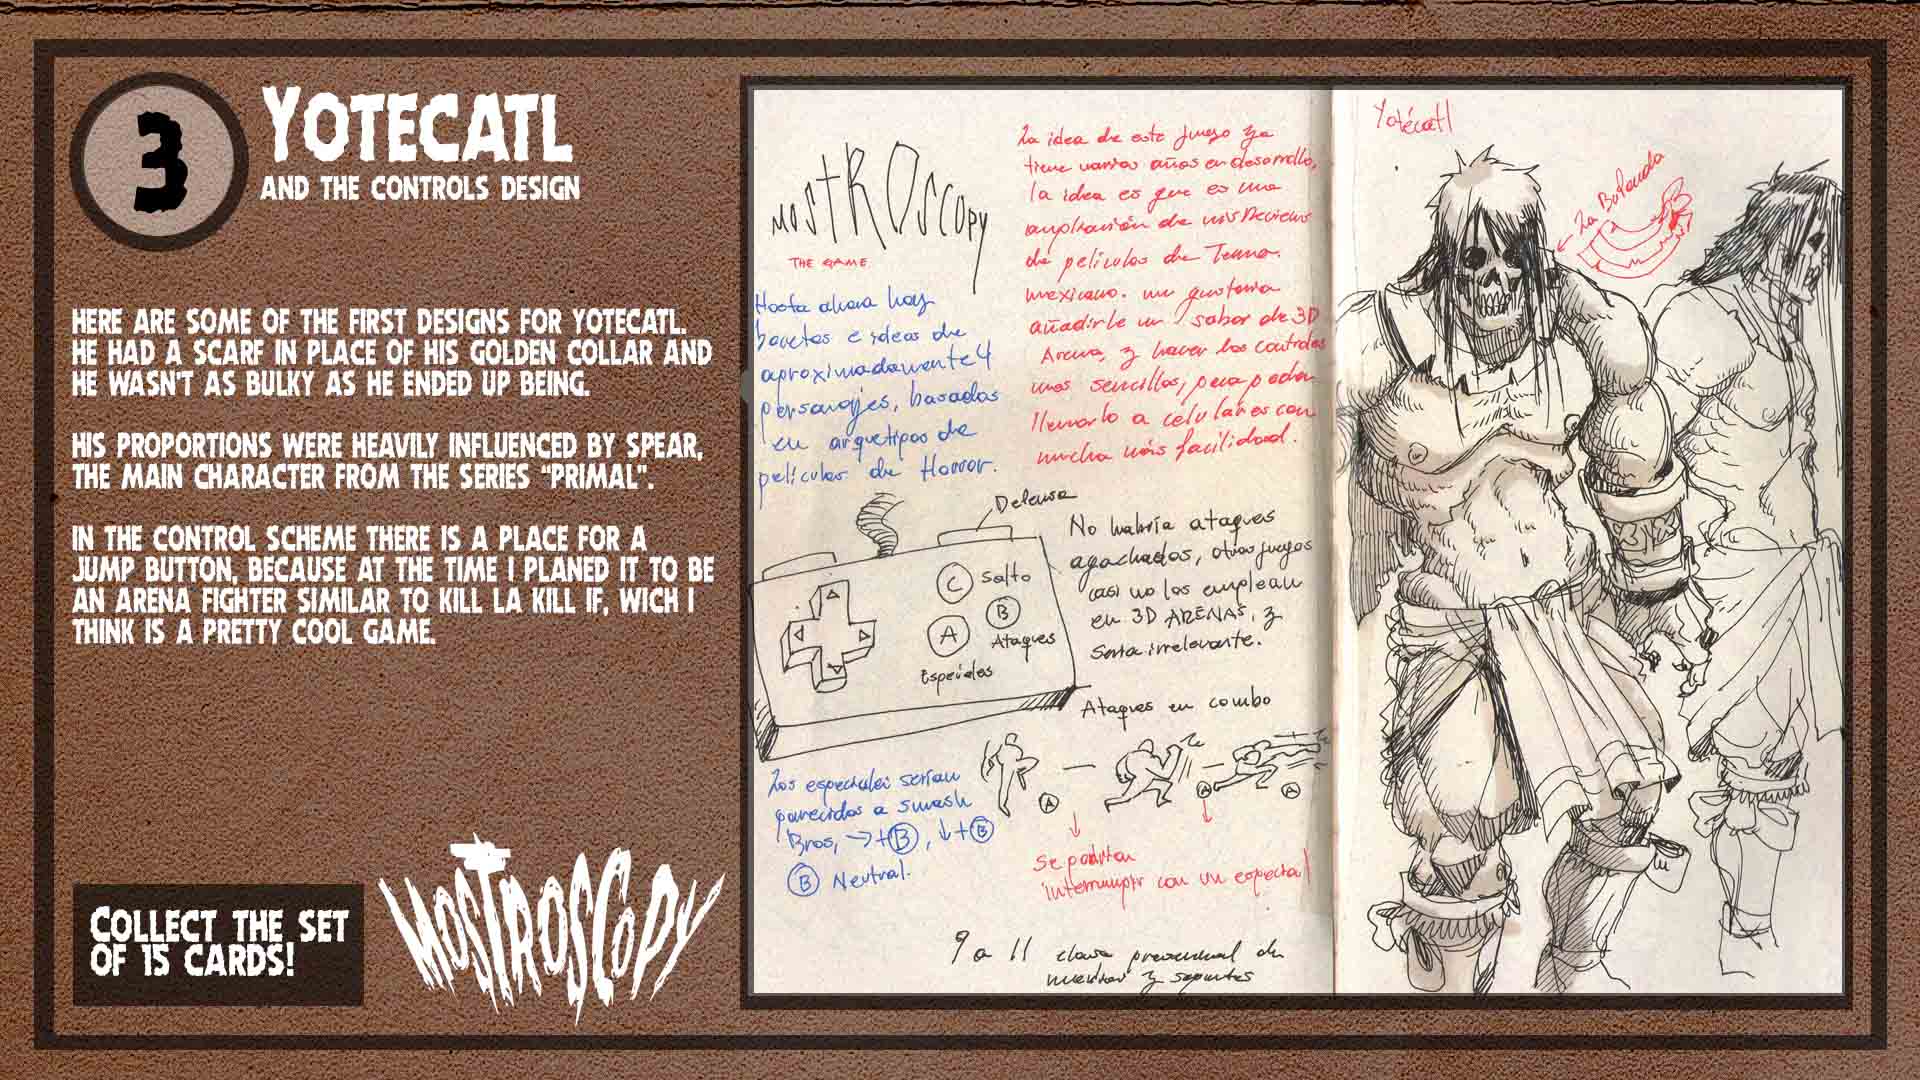 3
YOTECATL
AND THE CONTROLS DESIGN
HERE ARE SOME OF THE FIRST DESIGNS FOR YOTECATL.
HE HAD A SCARF IN PLACE OF HIS GOLDEN COLLAR AND
HE WASN'T AS BULKY AS HE ENDED UP BEING.
HIS PROPORTIONS WERE HEAVILY INFLUENCED BY SPEAR,
THE MAIN CHARACTER FROM THE SERIES "PRIMAL".
IN THE CONTROL SCHEME THERE IS A PLACE FOR A
JUMP BUTTON, BECAUSE AT THE TIME I PLANED IT TO BE
AN ARENA FIGHTER SIMILAR TO KILL LA KILL IF, WICH I
THINK IS A PRETTY COOL GAME.
COLLECT THE SET
OF 15 CARDS!
MOSTROSCOPY
MOSTROSCOPY
THE GAME
Hasta ahora hay
bocetos e ideas de
aproximadamente 4
personajes, basados
en arquetipos de
películas de Horror.
La idea de este juego ya
tiene varios años en desarrollo,
la idea es que es una
ampliación de mis Reviews
de películas de Terror
mexicano. me gustaria
añadirle un sabor de 3D
Arena, y hacer los controles
mas sencillos, para poder
llevarlo a celulares con
mucha más facilidad.
Defensa
C Salto
B
Ataques
A
Especiales
No habria ataques
agachados, otros juegos
casi no los emplean
en 3D ARENAS, y
seria irrelevante.
Ataques en combo
A
A
A
Los especiales serían
parecidos a smash
Bros, →+B, ↓+B
B Neutral.
Se podrían
interrumpir con un especial
9 a 11 clase presencial de
y
Yotécatl
La Bufanda